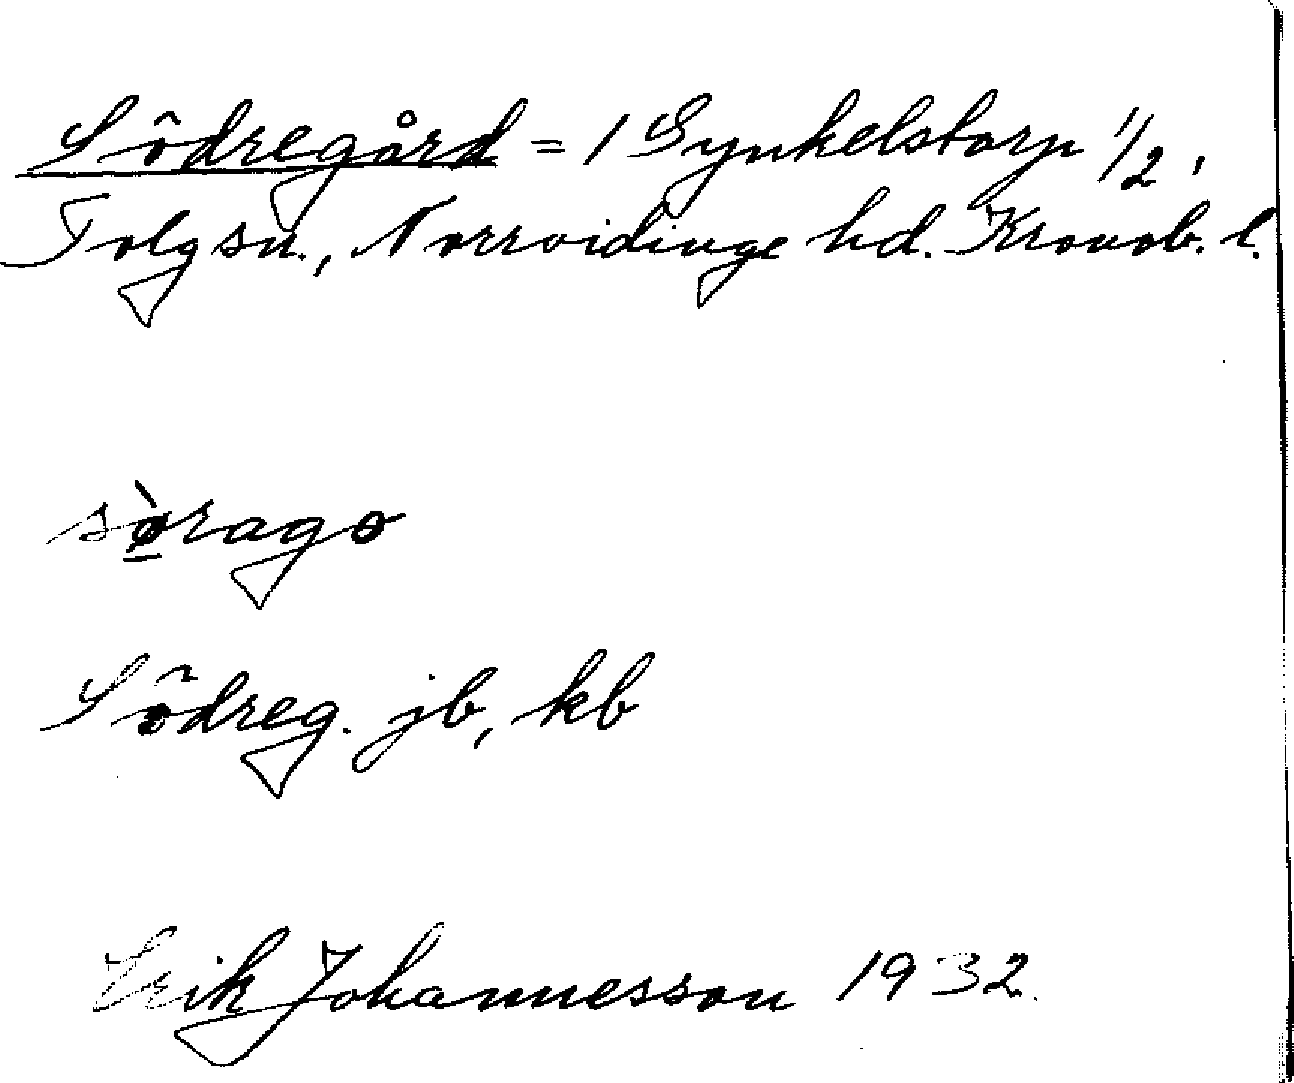 Södregård = 1 Gynkelstorp 1/2,
Tolg sn., Norrvidinge hd. Kronob. l.
sø̀rago
Södreg. jb, kb
Erik Johannesson 1932.